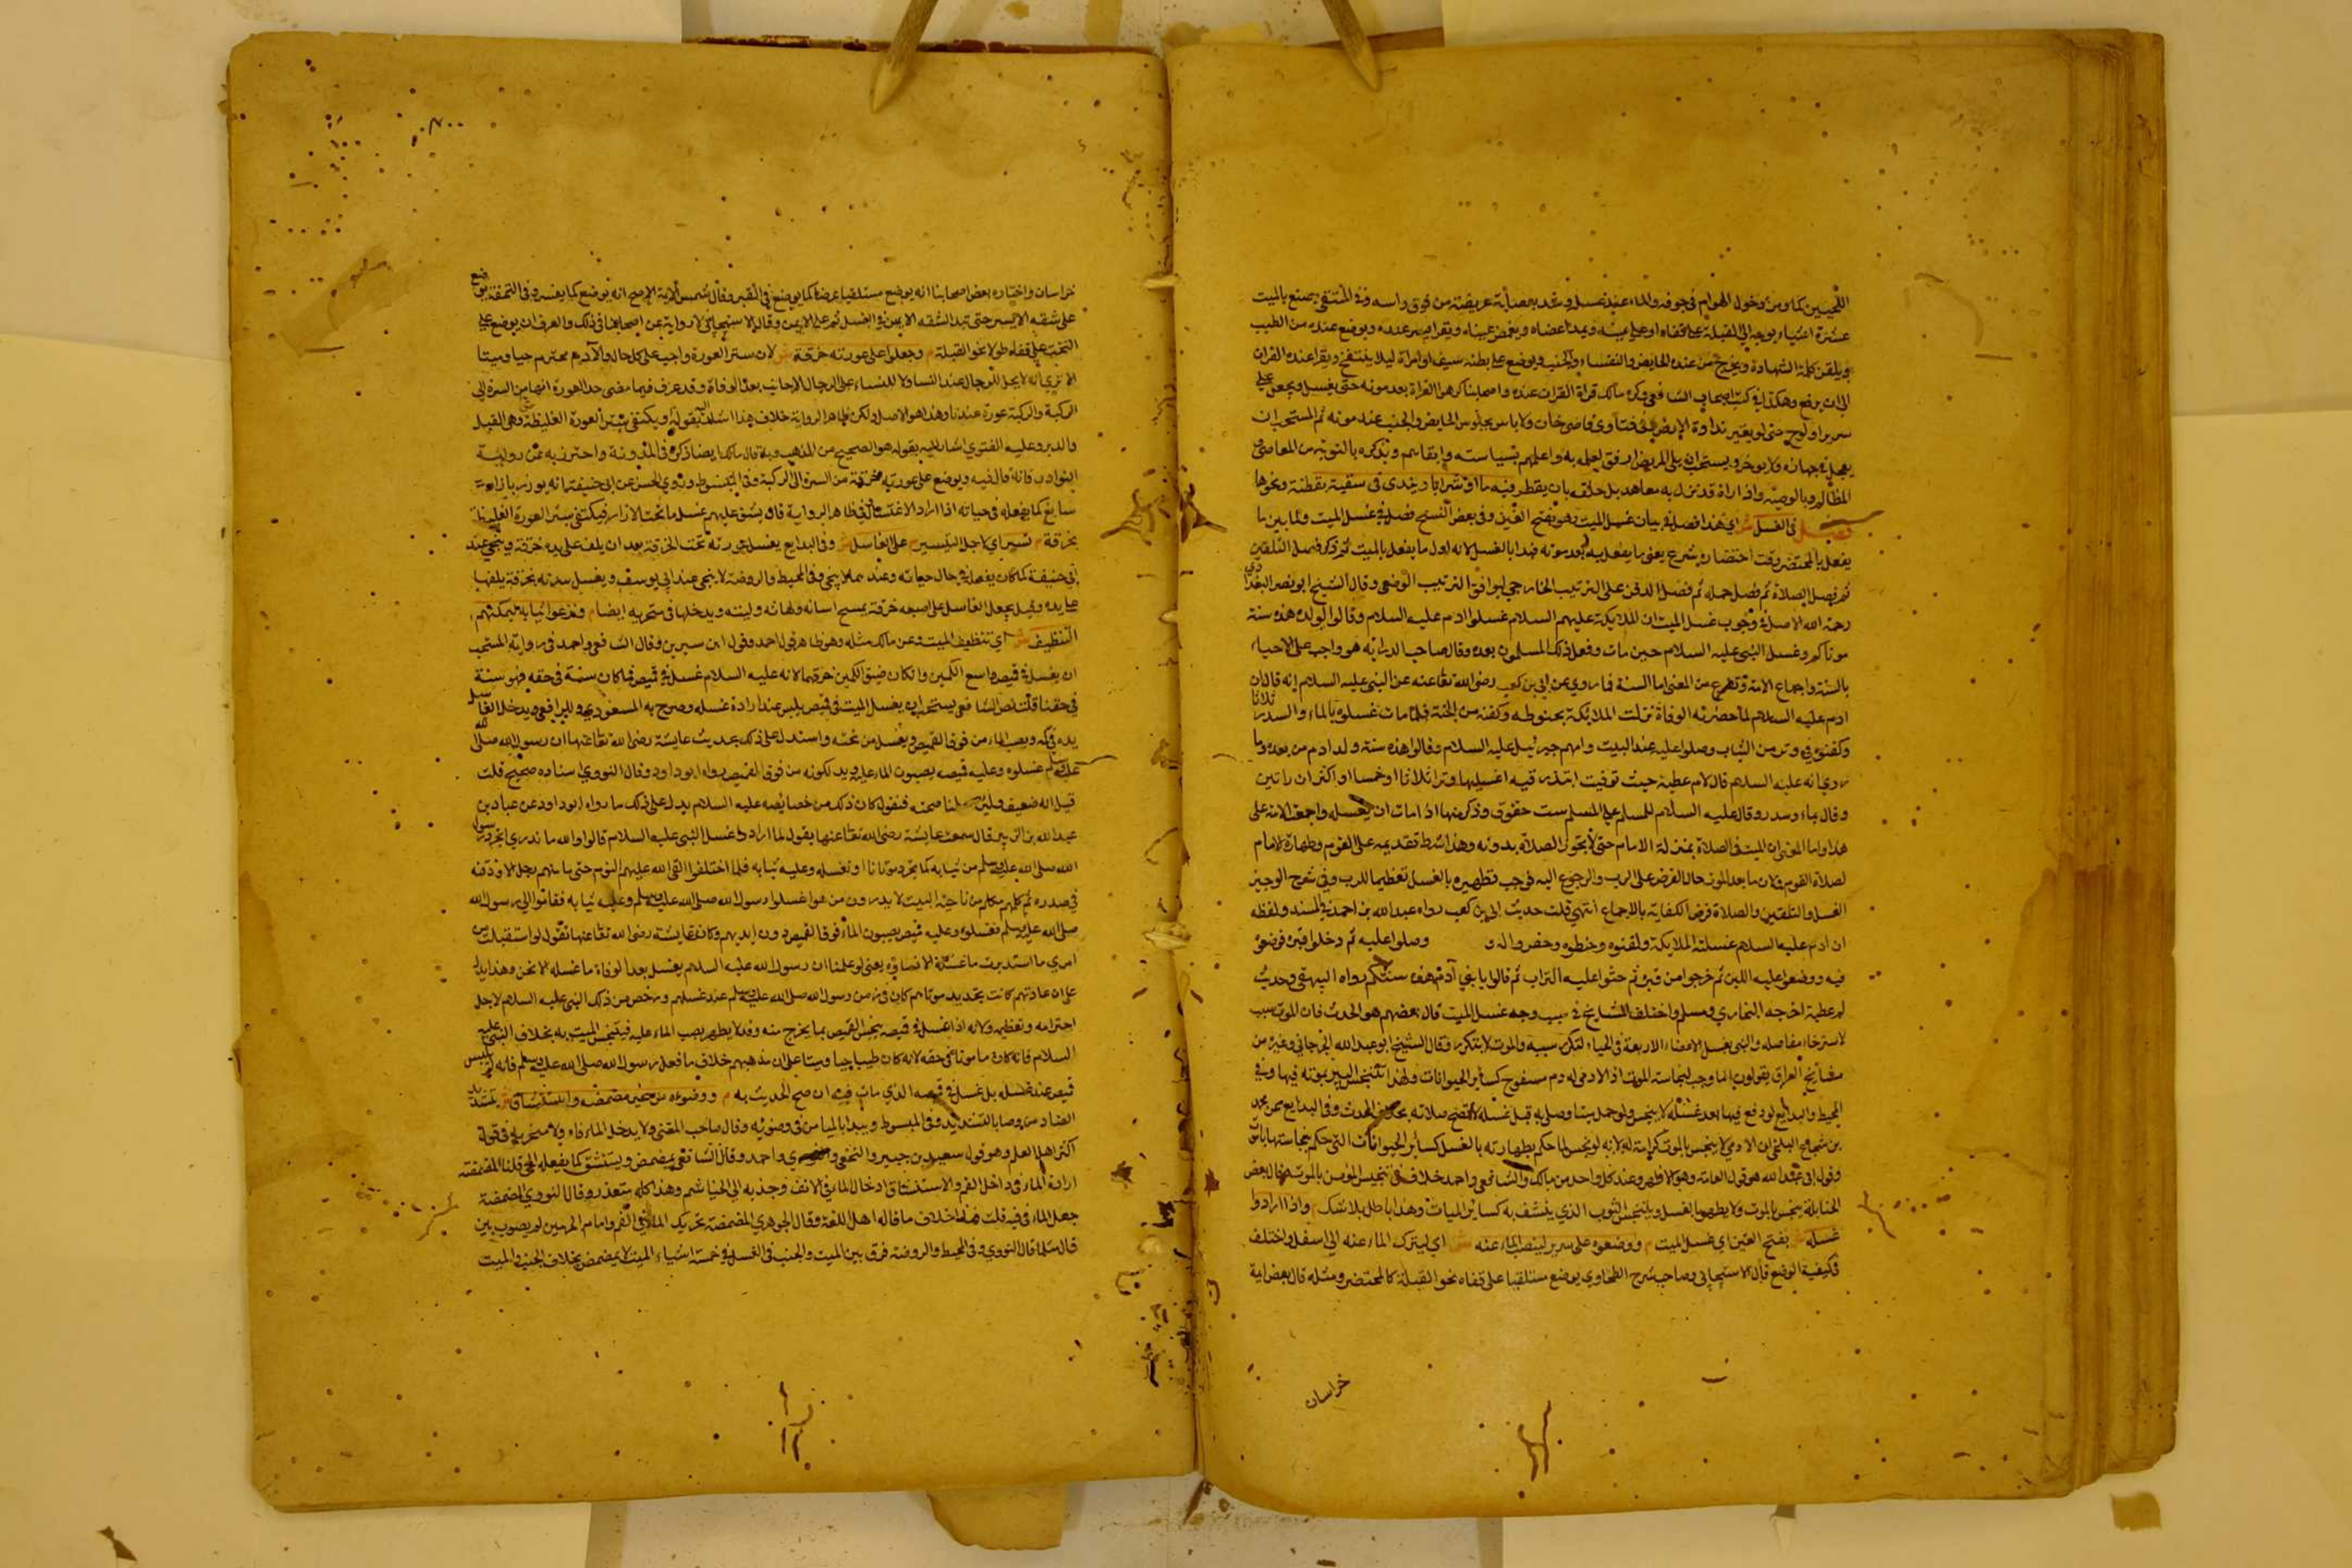 اللحيين كما ومن دخول الهوام في جوفه والماء عند غسله وشد بعصابة عريضة من فوق راسه وفي المنتقى يصنع بالميت
عشرة اشياء يوجه الى القبلة على قفاه او على يمينه ويمد اعضاه ويغمض عيناه ويقرا يس عنده ويوضع عنده من الطيب
ويلقن كلمة الشهادة ويخرج من عنده الحايض والنفساء والجنب ويوضع على بطنه سيف او امراة ليلا ينتفخ ويقرا عنده القران
الى ان يرفع وهكذا في كتب اصحاب الشافعي وكره مالك قراة القران عنده واصحابنا كرهوا القراة بعد موته حتى يغسل ويجعل على
سرير او لوح حتى لو يغير نداوة الارض وفي فتاوى قاضي خان ولا باس بجلوس الحايض والجنب عند موته ثم المستحب ان
يعجل في جهازه ولا يوخر ويستحب ان يلي المريض ارفق اهله به واعلمهم بسياسته واتقاهم ويذكره بالتوبة من المعاصي
المظالم وبالوصية واذا راه قد نزل به تعاهد بل حلقه بان يقطر فيه ماء او شرابا ويندى شفتيه بقطنة ونحوها
فصل في الغسل ش اي هذا فصل في بيان غسل الميت وهو بفتح الغين وفي بعض النسخ فصل في غسل الميت ولما بين ما
يفعل بالمحتضر وقت احتضاره شرع يعني ما يفعل به بعد موته فبدا بالغسل لانه اول ما يفعل بالميت ثم ذكر فصل التكفين
ثم فصل الصلاة ثم فصل حمله ثم فصل الدفن على الترتيب الخارجي ليوافق الترتيب الوضعي وقال الشيخ ابو نصر البغدادي
رحمه الله الاصل في وجوب غسل الميت ان الملايكة عليهم السلام غسلوا ادم عليه السلام وقالوا لولده هذه سنة
موتاكم وغسل النبي عليه السلام حين مات وفعل ذلك المسلمون بعده وقال صاحب الدراية هو واجب على الاحياء
بالسنة واجماع الامة ونوع من المعنى اما السنة فما روي عن ابي بن كعب رضي الله تعا عنه عن النبي عليه السلام انه قال ان
ادم عليه السلام لما حضرته الوفاة نزلت الملائكة بحنوطه وكفنه من الجنة فلما مات غسلوه بالماء والسدر ثلاثا
وكفنوه في وتر من الثياب وصلوا عليه عند البيت وامهم جبرئيل عليه السلام وقالوا هذه سنة ولد ادم من بعده وما
روي انه عليه السلام قال لام عطية حيث توفيت ابنته رقية اغسليها وترا ثلاثا او خمسا او اكثر ان راتين
وقال بماء وسدر وقال عليه السلام للمسلم على المسلم ست حقوق وذكر منها اذا مات ان يغسله واجمعت الامة على
هذا واما المعنى ان الميت في الصلاة بمنزلة الامام حتى لا تجوز الصلاة بدونه وهذا شرط تقديمه على القوم وطهارة الامام
لصلاة القوم ولان ما بعد الموت حال العرض على الرب والرجوع اليه فوجب تطهيره بالغسل تعظيما للرب وفي شرح الوجيز
الغسل والتكفين والصلاة فرض الكفاية بالاجماع انتهى قلت حديث ابي بن كعب رواه عبد الله بن احمد في المسند ولفظه
ان ادم عليه السلام غسلته الملايكة وكفنوه وحنطوه وحفروا له و وصلوا عليه ثم دخلوا قبره فوضعوه
فيه ووضعوا عليه اللبن ثم خرجوا من قبره ثم حثوا عليه التراب ثم قالوا يا بني آدم هذه سنتكم رواه البيهقي وحديث
ام عطية اخرجه البخاري ومسلم واختلف المشايخ في سبب وجه غسل الميت قال بعضهم هو الحدث فان الموت سبب
لاسترخاء مفاصله والنبي بغسل الاعضاء الاربعة في الحياة لتكرر سببه والموت لا يتكرر وقال الشيخ ابو عبد الله الجرجاني وغيره من
مشايخ العراق يقولون انما وجب لنجاسة الموت اذ الادمي له دم مسفوح كسائر الحيوانات ولهذا تتنجس البير بموته فيها وفي
المحيط والبدايع لو وقع فيها بعد غسله لا ينجس ولو حمل ميتا وصلى به قبل غسله لا تصح صلاته بخلاف الحدث وفي البدايع عن محمد
بن شجاع البلخي ان الادمي لا ينجس بالموت كرامة له لانه لو نجس لما حكم بطهارته بالغسل كسائر الحيوانات التي حكم بنجاستها بالموت
وقول ابي عبد الله هو قول العامة وهو الاظهر وعند كل واحد من مالك والشافعي واحمد خلاف في تنجيس المؤمن بالموت قال بعض
الحنابلة ينجس بالموت ولا يطهر بالغسل ويتنجس الثوب الذي ينشف به كسائر الميتات وهذا باطل بلا شك م واذا ارادوا
غسله ش بفتح الغين اي غسل الميت م ووضعوه على سرير لينصب الماء عنه ش اي ليترك الماء عنه الى اسفل واختلف
في كيفية الوضع قال الاسبيجابي وصاحب شرح الطحاوي يوضع مستلقيا على قفاه نحو القبلة كالمحتضر ومثله قال بعض ايمة
خراسان
خراسان واختياره بعض اصحابنا انه يوضع مستلقيا عرضا كما يوضع في القبر وقال شمس الايمة الاصح انه يوضع كما يفسر وفي التحفة يوضع
على شقه الايسر حتى تبدا لشقه الايمن في الغسل ثم على الايمن وقال الاسبيجابي لا رواية عن اصحابنا في ذلك والعرف ان يوضع على
التخت على قفاه طولا نحو القبلة م وجعلوا على عورته خرقة ش لان ستر العورة واجب على كل حال والآدمي محترم حيا وميتا
الا ترى انه لا يحل للرجال عند النسا ولا للنساء على الرجال الاجانب بعد الوفاة وقد عرف فيما مضى حد العورة انها من السرة الى
الركبة والركبة عورة عندنا وهذا هو الاصل ولكن ظاهر الرواية خلاف هذا اشار اليه بقوله م ويكتفى بستر العورة الغليظة وهي القبل
والدبر وعليه الفتوى اشار اليه بقوله هو الصحيح من المذهب وبه قال مالك ايضا ذكره في المدونة واحترز به عن رواية
النوادر فانه قال فيه ويوضع على عورته خرقة من السرة الى الركبة وفي المبسوط وروى الحسن عن ابي حنيفة انه يوزر بازار
سابغ كما يفعله في حياته اذا اراد الاغتسال وفي ظاهر الرواية قال يشق عليهم غسل ما تحت الازار فيكتفى بستر العورة الغليظة
بخرقة م تيسيرا ش اي لاجل التيسير على الغاسل ش وفي البدايع يغسل عورته تحت الخرقة بعد ان يلف على يده خرقة وينجى عند
ابي حنيفة كما كان يفعله في حال حياته وعندهما لا ينجى وفي المحيط والروضة لا ينجى عند ابي يوسف ويغسل سوته بخرقة يلفها
على يده وقيل يجعل الغاسل على اصبعه خرقة يمسح اسنانه ولهاته ولثته ويدخلها في منخريه ايضا م ونزعوا ثيابه ليمكنهم
التنظيف ش اي تنظيف الميت وعن مالك مثله وهو ظاهر قول احمد وقول ابن سيرين وقال الشافعي واحمد في رواية المستحب
ان يغسل في قميص واسع الكمين وان كان ضيق الكمين خرقهما لانه عليه السلام غسل في قميص فما كان سنة في حقه فهو سنة
في حقنا قلت نص الشافعي يستحب ان يغسل الميت في قميص يلبس عند ارادة غسله وصرح به المسعودي والرافعي ويدخل الغاسل
يده في كمه ويصب الماء من فوق القميص ويغسل من تحته واستدل على ذلك بحديث عايشة رضي الله تعا عنها ان رسول الله صلى الله
عليه وسلم غسلوه وعليه قميصه يصبون الماء عليه ويدلكونه من فوق القميص رواه ابو داود وقال النووي اسناده صحيح قلت
قيل انه ضعيف ولئن سلمنا صحته فنقول كان ذلك من خصايصه عليه السلام يدل على ذلك ما رواه ابو داود عن عباد بن
عبد الله بن الزبير قال سمعت عايشة رضي الله تعا عنها يقول لما ارادوا غسل النبي عليه السلام قالوا والله ما ندري انجرد رسول
الله صلى الله عليه وسلم من ثيابه كما نجرد موتانا او نغسله وعليه ثيابه فلما اختلفوا القى الله عليهم النوم حتى ما منهم رجل الا وذقنه
في صدره ثم كلمهم مكلم من ناحية البيت لا يدرون من هو اغسلوا رسول الله صلى الله عليه وسلم وعليه ثيابه فقاموا الى رسول الله
صلى الله عليه وسلم فغسلوه وعليه قميص يصبون الماء فوق القميص دون ايديهم وكانت عايشة رضي الله تعا عنها تقول لو استقبلت من
امري ما استدبرت ما غسله الا نساؤه يعني لو علمنا ان رسول الله عليه السلام يغسل بعد الوفاة ما غسله الا نحن وهذا يدل
على ان عادتهم كانت تجريد موتاهم كان في زمن رسول الله صلى الله عليه وسلم عند غسلهم ورخص من ذلك النبي عليه السلام لاجل
احترامه وتعظيمه ولانه اذا غسل في قميصه ينجس القميص بما يخرج منه وقد لا يطهر بصب الماء عليه فيتنجس الميت به بخلاف النبي عليه
السلام فانه كان مامونا في حقه لانه كان طيبا حيا وميتا على ان مذهبهم خلاف ما فعل رسول الله صلى الله عليه وسلم فانه لم يلبس
قميص عند غسله بل غسل في قميصه الذي مات فيه ان صح الحديث به م ووضوءه من غير مضمضة واستنشاق ش بتشديد
الضاد من وضا بالتشديد وفي المبسوط ويبدا بالميامن في وضوئه وقال صاحب المغني ولا يدخل الماء فاه ولا منخريه في قول
اكثر اهل العلم وهو قول سعيد بن جبير والنخعي والثوري واحمد وقال الشافعي يمضمض ويستنشق كما يفعله الحي قلنا المضمضة
ادارة الماء في داخل الفم والاستنشاق ادخال الماء في الانف وجذبه الى الخياشم وهذا كله متعذر وقال النووي المضمضة
جعل الماء في فيه قلت هذا خلاف ما قاله اهل اللغة وقال الجوهري المضمضة تحريك الماء في الفم وامام الحرمين لم يصوب بين
قال مثل ما قال النووي وفي المحيط والروضة فرق بين الميت والجنب في الغسل في خمسة اشياء الميت لا يمضمض بخلاف الجنب والميت